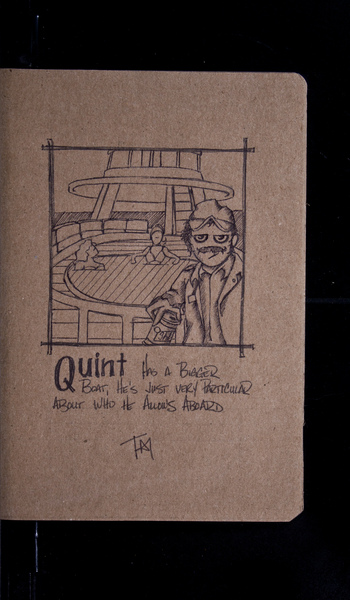 Quint Has a Bigger
Boat, He's Just Very Particular
About Who He Allows Aboard